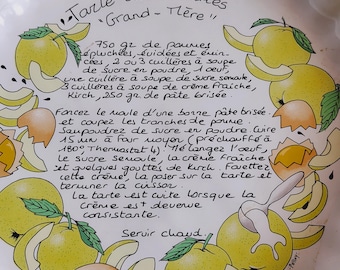 Tarte
"Grand-Mère"
750 gr de pommes
épluchées, évidées et émin-
cées, 2 ou 3 cuillères à soupe
de sucre en poudre, 1 oeuf,
une cuillère à soupe de sucre semoule,
3 cuillères à soupe de crème fraîche,
Kirch, 250 gr de pâte brisée.
Foncez le moule d'une bonne pâte brisée.
et coupez les tranches de pommes.
Saupoudrez de sucre en poudre Cuire
15 mn à four moyen (préchauffé à
180° Thermostat 4) Mélangez l'oeuf,
le sucre semoule, la crème fraîche
et quelques gouttes de kirch. Fouettez
cette crème, la poser sur la tarte et
terminer la cuisson.
La tarte est cuite lorsque la
crème est devenue
consistante.
Servir chaud